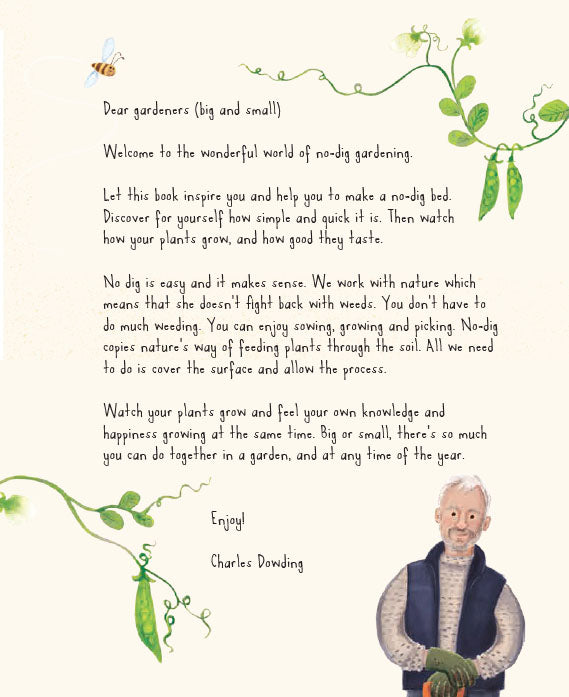 Dear gardeners (big and small)
Welcome to the wonderful world of no-dig gardening.
Let this book inspire you and help you to make a no-dig bed.
Discover for yourself how simple and quick it is. Then watch
how your plants grow, and how good they taste.
No dig is easy and it makes sense. We work with nature which
means that she doesn't fight back with weeds. You don't have to
do much weeding. You can enjoy sowing, growing and picking. No-dig
copies nature's way of feeding plants through the soil. All we need
to do is cover the surface and allow the process.
Watch your plants grow and feel your own knowledge and
happiness growing at the same time. Big or small, there's so much
you can do together in a garden, and at any time of the year.
Enjoy!
Charles Dowding